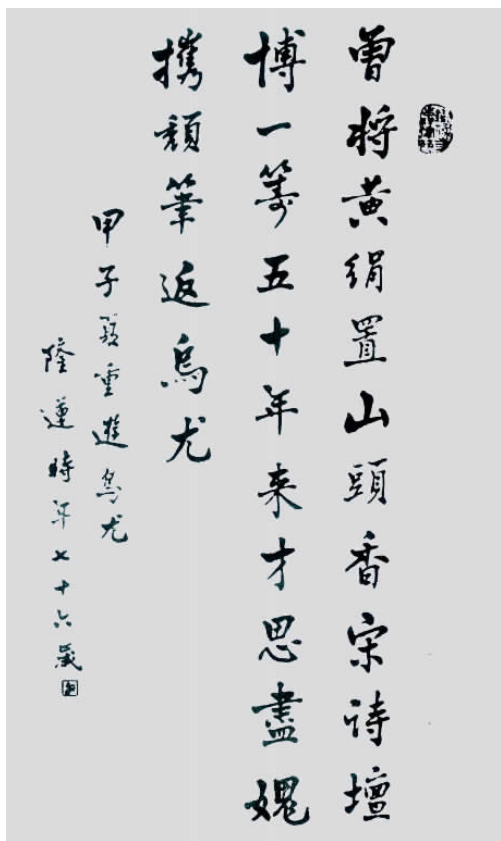 曾将黄绢置山頭香宋诗壇
博一筹五十年来才思盡媿
携頹筆返烏尤
甲子夏重遊烏尤
隆蓮時年七十六歲